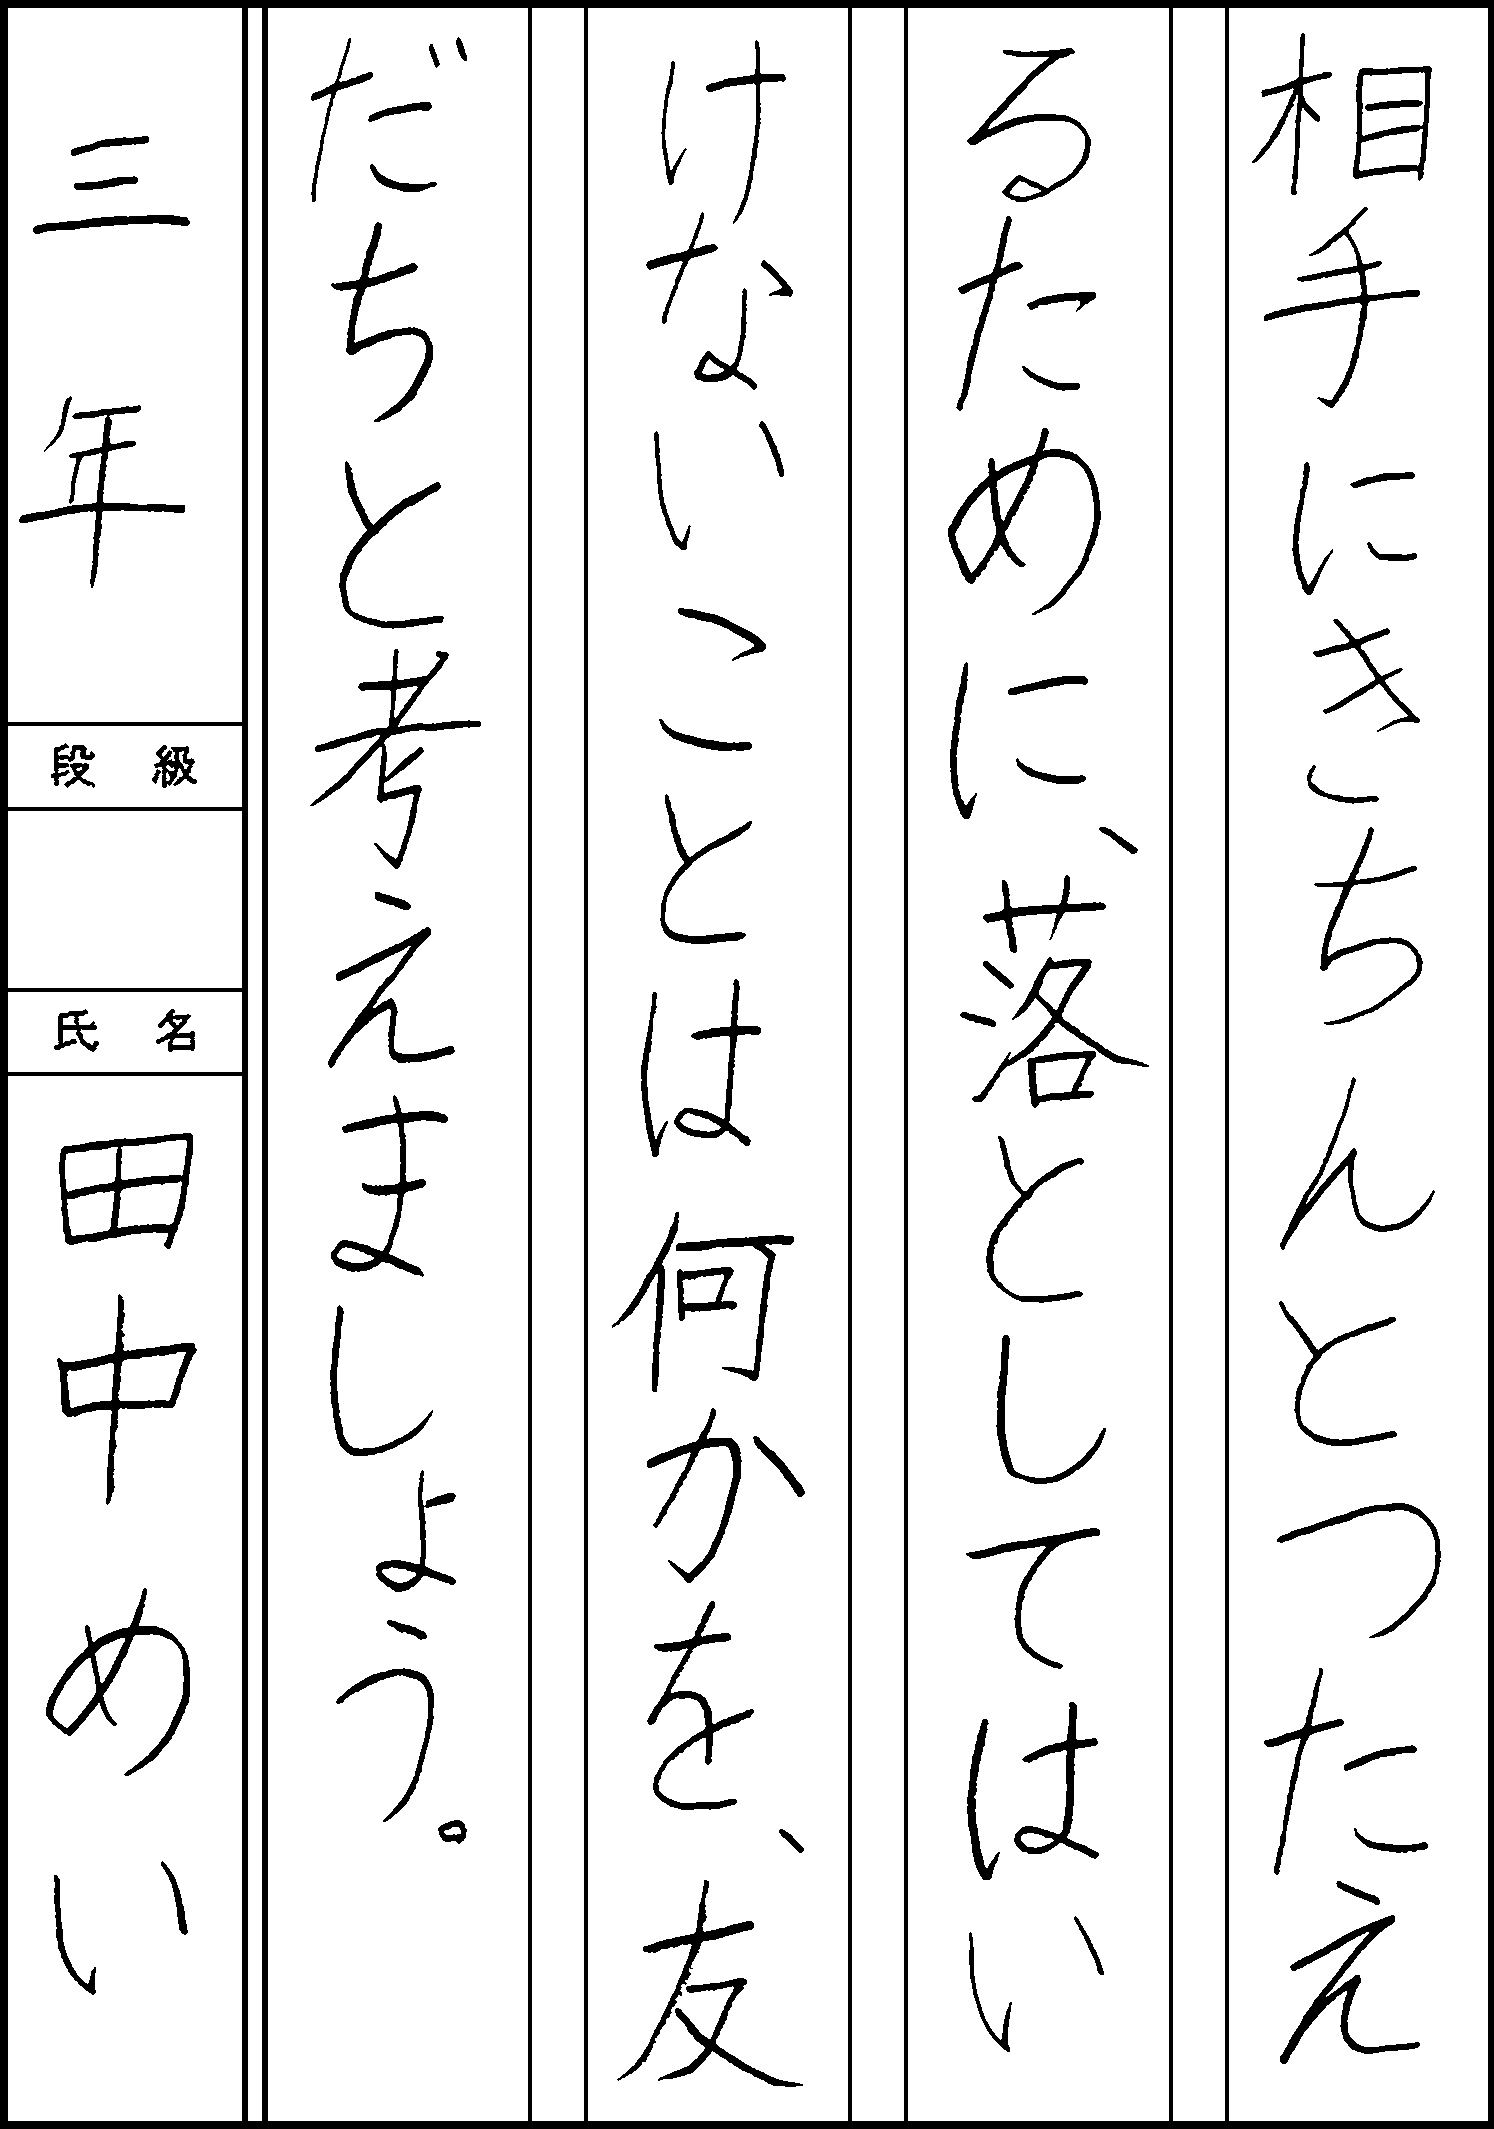 相手にきちんとつたえ
るために、落としてはい
けないことは何かを、友
だちと考えましょう。
三年
段級
氏名
田中めい